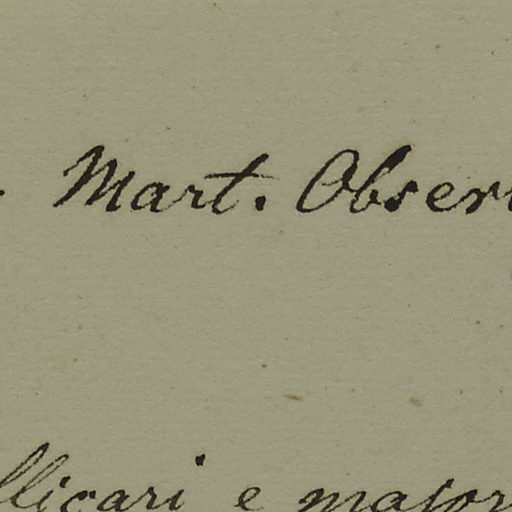 Mart. Obser
llicari e major